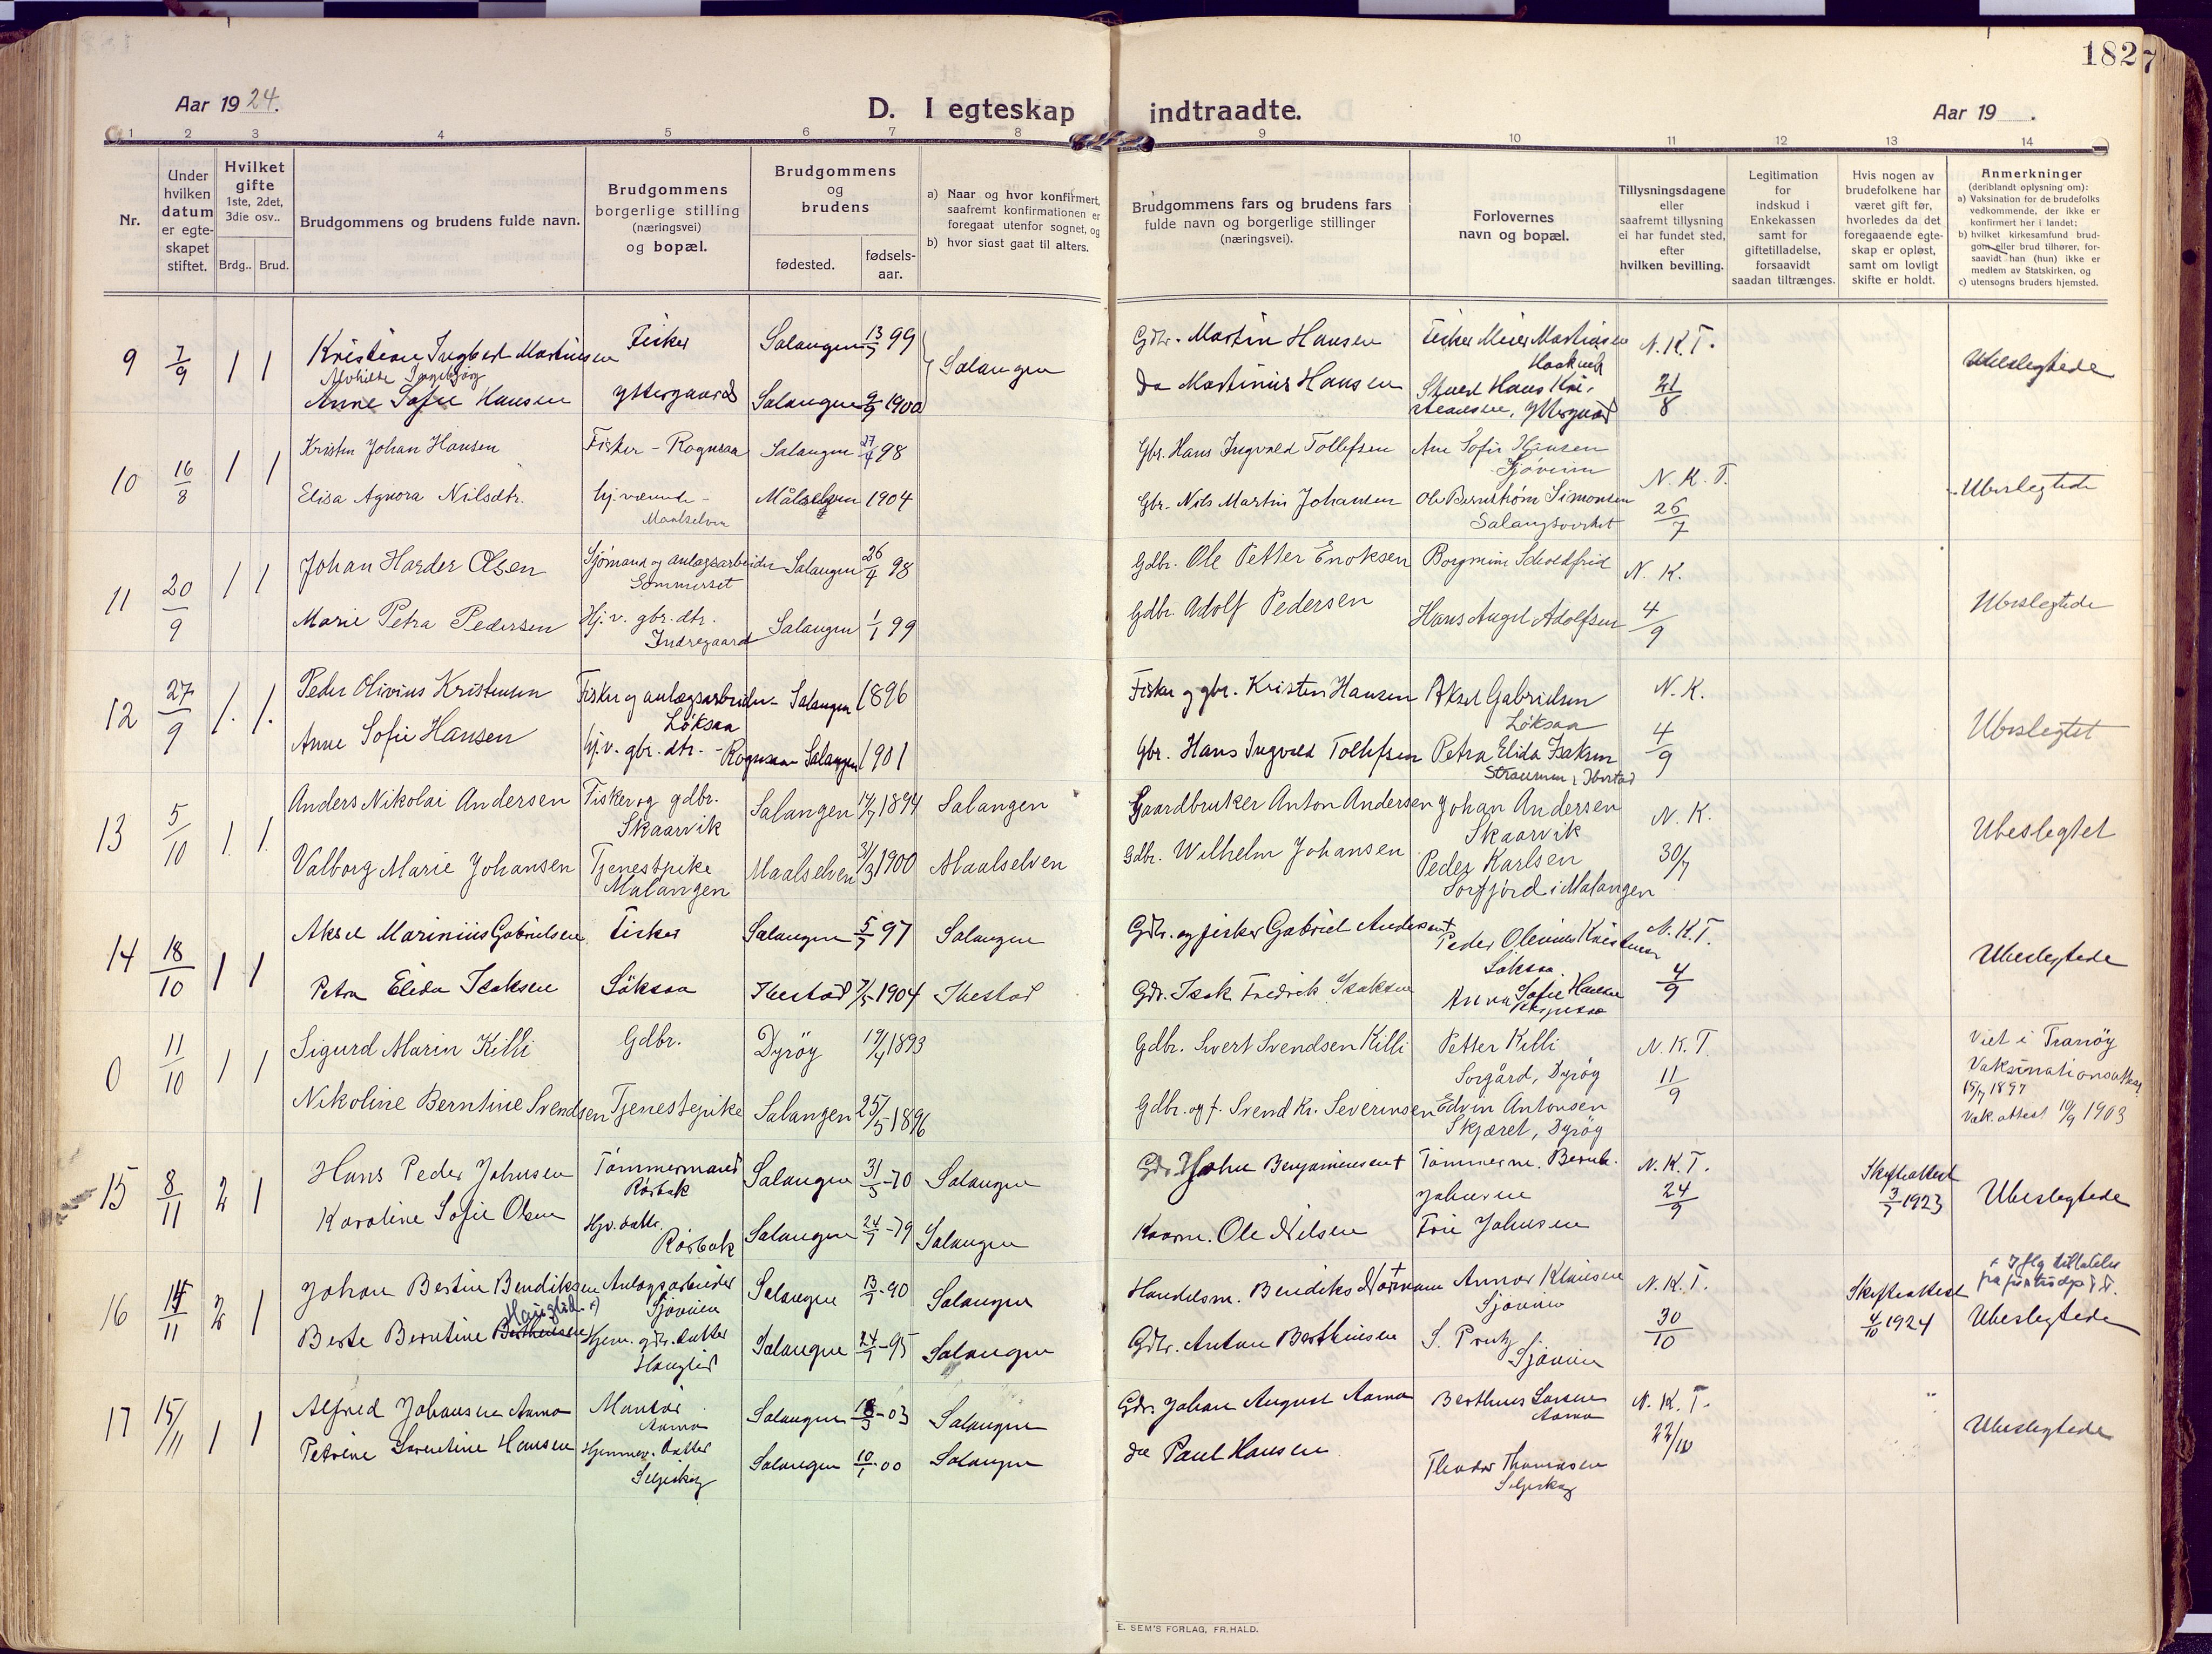 182
Aar 1924.
D. I egteskap indtraadte.
Aar 19 .
1 2 3 4 5 6 7 8 9 10 11 12 13 14
Nr.
Under hvilken datum er egteskapet stiftet.
Hvilket gifte 1ste, 2det, 3die osv..
Brdg.. Brud.
Brudgommens og brudens fulde navn.
Brudgommens borgerlige stilling (næringsvei) og bopæl.
Brudgommens og brudens
fødested.
fødselsaar.
a) Naar og hvor konfirmert, saafremt konfirmationen er foregaat utenfor sognet, og
b) hvor sidst gaat til alters.
Brudgommens fars og brudens fars fulde navn og borgerlige stillinger (næringsvei).
Forlovernes navn og bopæl.
Tillysningsdagene eller saafremt tillysning ei har fundet sted, efter hvilken bevilling.
Legitimation for indskud i Enkekassen samt for giftetilladelse, forsaavidt saadan tiltrænges.
Hvis nogen av brudefolkene har været gift før, hvorledes da det foregaaende egteskap er opløst, samt om lovligt skifte er holdt.
Anmerkninger (deriblandt oplysning om):
a) Vaksination for de brudefolks vedkommende, der ikke er konfirmert her i landet;
b) hvilket kirkesamfund brudgom eller brud tilhører, forsaavidt han (hun) ikke er medlem av Statskirken, og
c) utensogns bruders hjemsted.
9 7/9 1 1 Kristian Ingbert Martinsen Fisker Salangen 99 Salangen Gdbr. Martin Hansen Fisker Meier Martinsen N.K.T. Ubeslegtede
Alvhilde Ingebjørg
Anne Sofie Hansen Yttergaard Salangen 1900 Do Martinius Hansen Hans Kristiansen, Yttergaard 21/8
10 16/8 1 1 Kristen Johan Hansen Fisker - Rognsaa Salangen 98 Gbr. Hans Ingvald Tollefsen Ane Sofie Hansen N.K.T. Ubeslegtede
Sjøvein
Elisa Agnora Nilsdtr. hj.værende - Målselven 1904 Gbr. Nils Martin Johansen Ole Bernstrøm Simonsen 26/7
Maalselven Salangsverket
11 20/9 1 1 Johan Harder Olsen Sjømand og anlægsarbeider Salangen 26/4 98 Gdbr. Ole Petter Enoksen N. K. Ubeslegtede
Sommerset
Marie Petra Pedersen Hj.v. gbr.dtr. Salangen 1/1 99 Gdbr. Adolf Pedersen Hans Angel Adolfsen 4/9
Indregaard
12 27/9 1. 1. Peder Olivius Kristensen Fisker og anlægsarbeider - Salangen 1896 Fisker og gbr. Kristen Hansen Aksel Gabrielsen N.K. Ubeslegtet
Løksaa Løksaa
Anne Sofie Hansen hj.v. gbr.dtr. - Rognsaa Salangen 1901 Gbr. Hans Ingvald Tollefsen Petra Elida Isaksen 4/9
Straumen i Ibestad
13 5/10 1. 1. Anders Nikolai Andersen Fisker og gdbr. Salangen 14/7 1894 Salangen Gaardbruker Anton Andersen Johan Andersen N. K. Ubeslegtet
Skaarvik Skaarvik
Valborg Marie Johansen Tjenestpike Maalselven 31/3 1900 Maalselven Gdbr. Wilhelm Johansen Peder Karlsen 30/7
Malangen Sørfjord i Malangen
14 18/10 1 1 Aksel Marinius Gabrielsen Fisker Salangen 97 Salangen Gdbr. og fisker Gabriel Andersen † Peder Olivius Kristensen N.K.T. Ubeslegtede
Løksaa
Petra Elida Isaksen Løksaa Ibestad 7/5 1904 Ibestad Gdr. Isak Fredrik Isaksen Anna Sofie Hansen 4/9
0 11/10 1 1 Sigurd Marin Killi Gdbr. Dyrøy 19/4 1893 Gdbr. Sivert Svendsen Killi Petter Killi N.K.T. Viet i Tranøy
Sørgård, Dyrøy Vaksinationsattest 15/7 1897
Nikoline Berntine Svendsen Tjenestepike Salangen 25/5 1896 Gdbr. og f. Svend Kr. Severinsen Edvin Antonsen 11/9 Vak. attest 10/9 1903
Skjæret, Dyrøy
15 8/11 2 1 Hans Peder Johnsen Tømmermand Salangen 70 Salangen Gdr. John Benjaminsen † Tømmerm. Bernh. N.K.T. Skifteattest Ubeslegtede
Rørbak Johnsen 24/9 1923
Karoline Sofie Olsen Hjv. datter Salangen 79 Salangen Kaarm. Ole Nilsen Johnsen
Rørbak
16 15/11 2 1 Johan Bertin Bendiksen Anlægsarbeider Salangen 13/1 90 Salangen Handelsm. Bendiks Normann † Annar Klausen N.K.T. Skifteattest 4/10 1924 Ubeslegtede
Hauglid x) Sjøvein Sjøvein x Iflg tilladelse fra justisdep.
Berte Berntine Berthinsen Hjem. gdr. datter Salangen 95 Salangen Gdbr. Anton Berthinsen S. Prytz 30/10
Hauglid Sjøvein
17 15/11 1 1 Alfred Johansen Aamo Montør Salangen 03 Salangen Gdr. Johan August Aamo Berthus Larsen N.K.T. Ubeslegtede
Aamo Aamo
Petrine Laurentine Hansen Hjemmev. datter Salangen 00 Salangen do Paul Hansen Theodor Thomassen 22/10
Seljeskog Seljeskog
E. SEM'S FORLAG, FR.HALD.